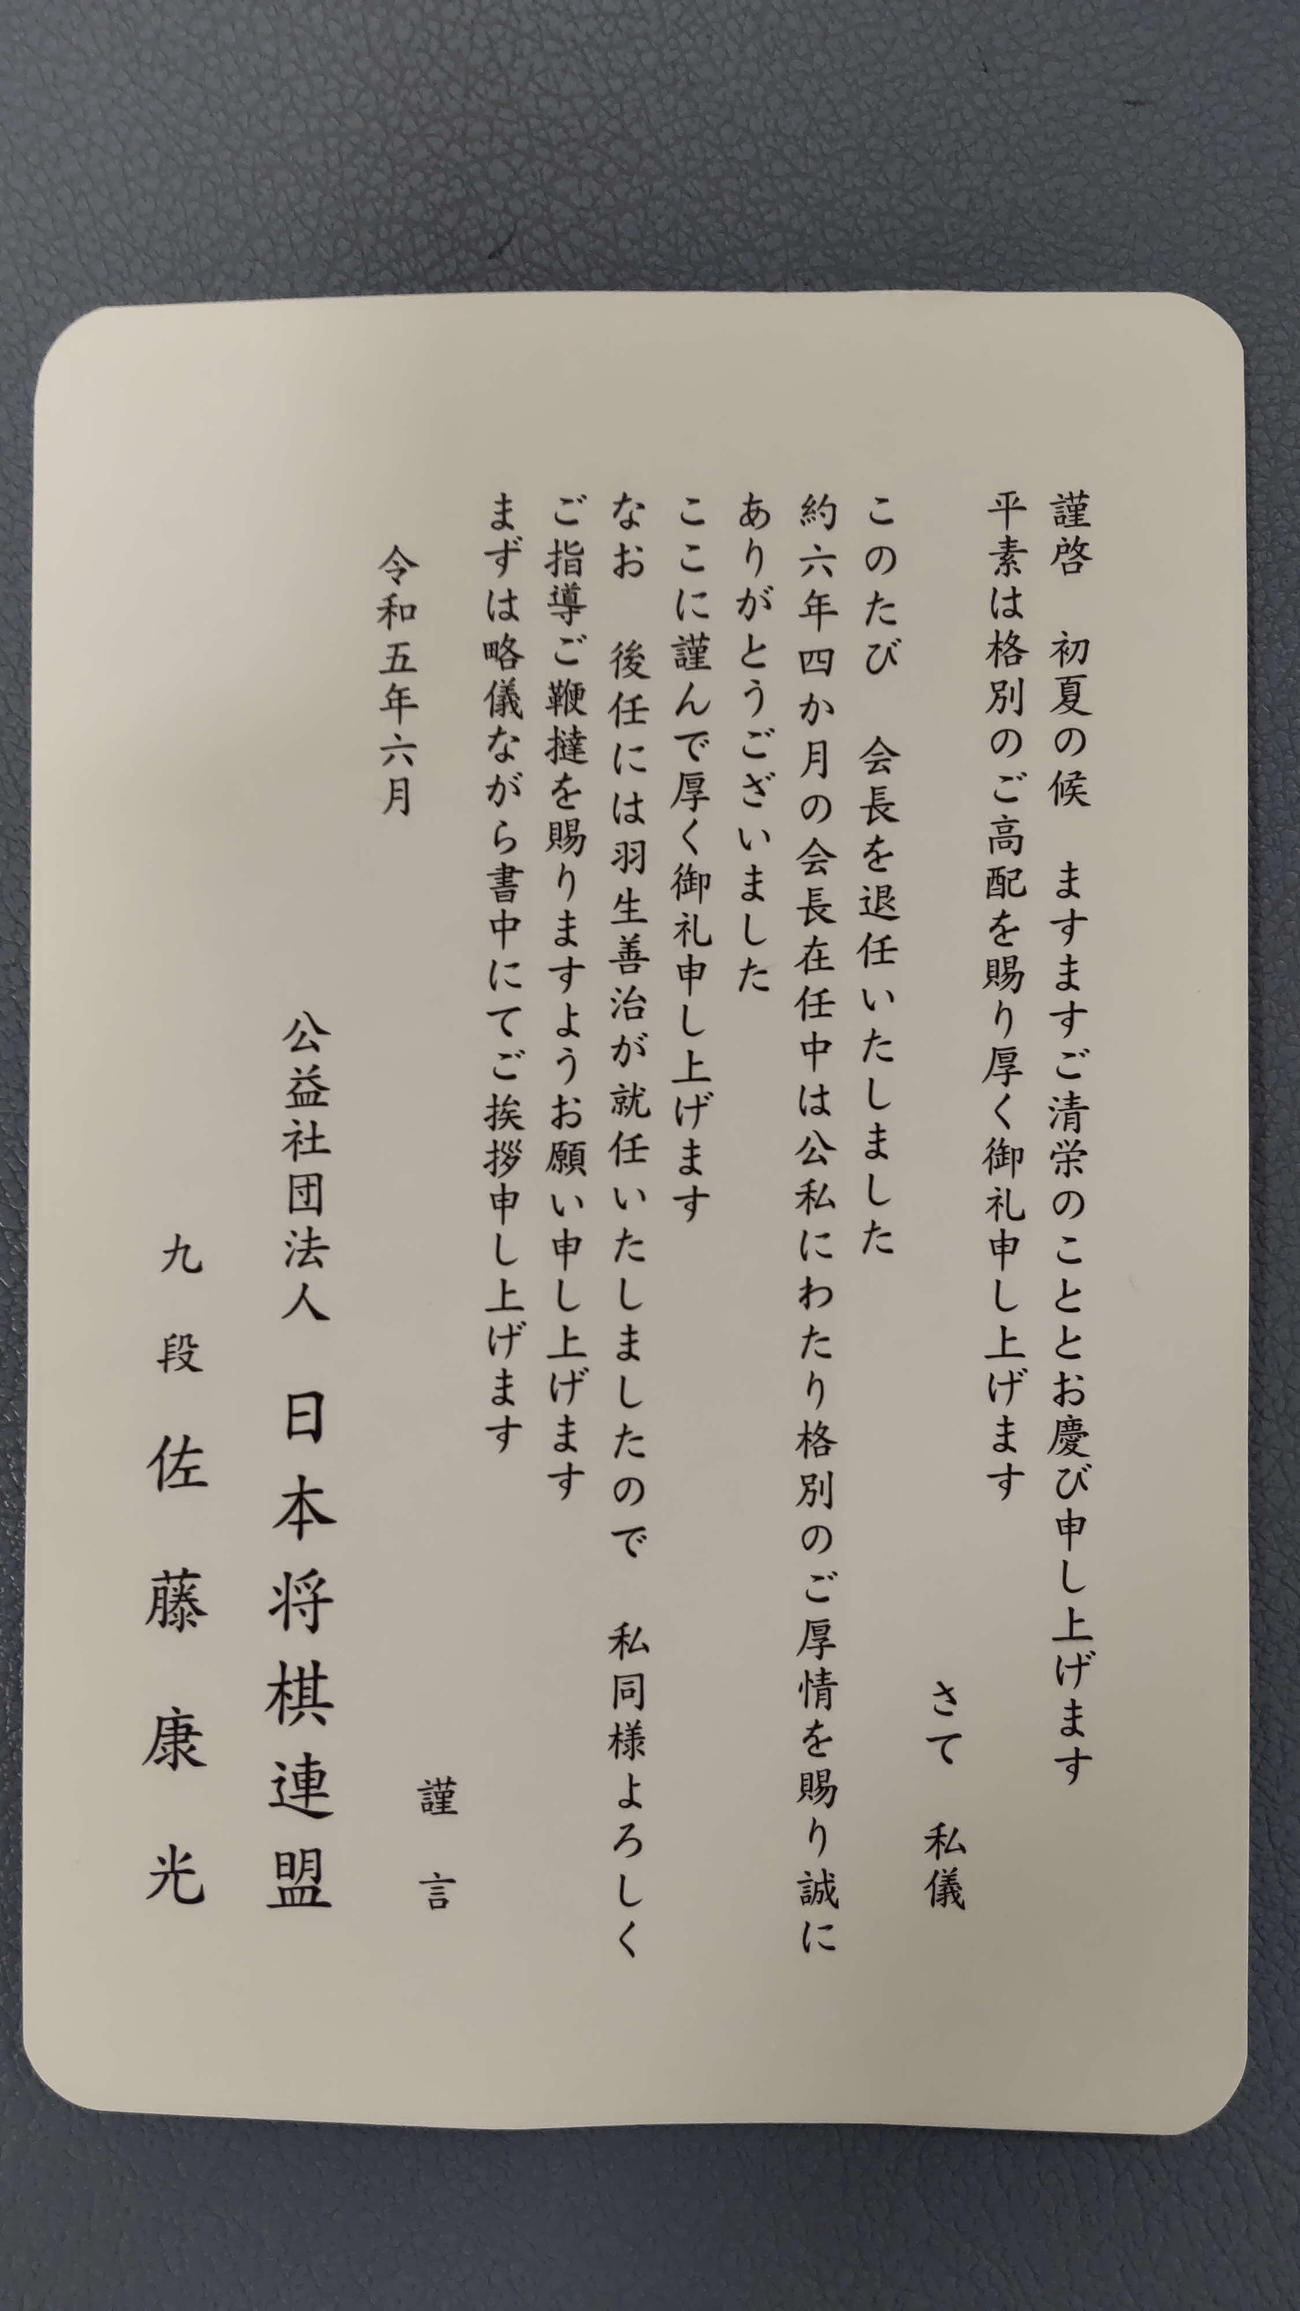 謹啓　初夏の候　ますますご清栄のこととお慶び申し上げます
平素は格別のご高配を賜り厚く御礼申し上げます
さて　私儀
このたび　会長を退任いたしました
約六年四か月の会長在任中は公私にわたり格別のご厚情を賜り誠に
ありがとうございました
ここに謹んで厚く御礼申し上げます
なお　後任には羽生善治が就任いたしましたので　私同様よろしく
ご指導ご鞭撻を賜りますようお願い申し上げます
まずは略儀ながら書中にてご挨拶申し上げます
謹言
令和五年六月
公益社団法人　日本将棋連盟
九段　佐藤康光